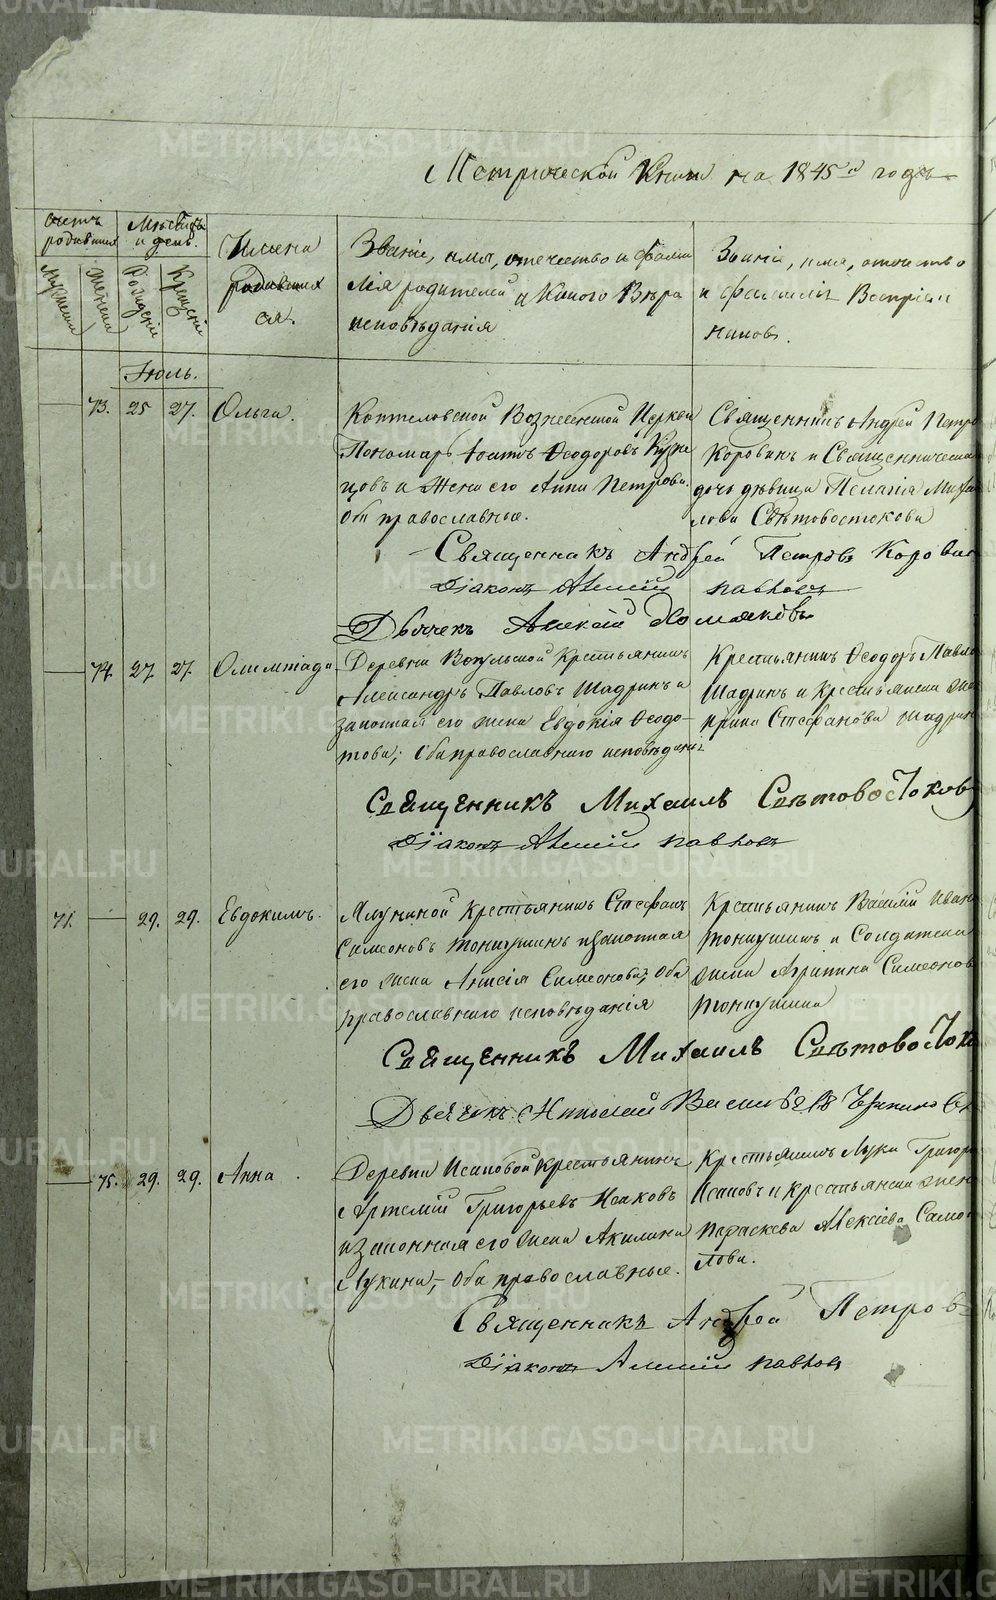 Метрической Книги на 1845й годъ
Счетъ родившихся
Мѣсяцъ и день.
Имена родившихся.
Званіе, имя, отечество и фамилія родителей и Какого Вѣроисповѣданія
Званіе, имя, отечество и фамилія Воспріемниковъ.
Мужеска
Женска
Рожденія
Крещенія
Іюль.
73. 25 27. Ольга.
Коптеловской Вознесенской Церкви
Пономарь Ѳеодоровъ
цовъ и Жена его Анна Петрова.
Оба православные.
Священникъ Андрей Петро
Коровинъ и Священническая
дочь дѣвица Пелагія Михаи
лова Свѣтовостокова
Священникъ Андрей Петровъ Коровин
Діаконъ Алексій Павловъ
Дьячекъ Алексей Хомяковъ
74. 27. 27. Олимпіада
Деревни Вогульской Крестьянинъ
Александръ Павловъ Шадринъ и
законная его жена Евдокія Ѳеодо-
това; Оба православнаго исповѣданія
Крестьянинъ Ѳеодоръ Павло
Шадринъ и Крестьянска
Стефанова Шадрин
Священникъ Михаилъ Свѣтовостоковъ
Діаконъ Алексій Павловъ
71. 29. 29. Евдокимъ.
Крестьянинъ Стефанъ
Симеоновъ и законная
его жена Анисія Симеонова; Оба
православнаго исповѣданія
Крестьянинъ Василій Иван
и Солдатская
жена Агрипина Симеонов
Священникъ Михаилъ Свѣтовосток
Дьячекъ Николай Васильевъ
75. 29. 29. Анна.
Деревни Исаковой Крестьянинъ
Артемій Григорьевъ Исаковъ
и законная его жена Акилина
Лукина, Оба православные.
Крестьянинъ Лука Григорь
Исаковъ и Крестьянская жен
Параскева Алексіева Само
лова.
Священникъ Андрей Петровъ
Діаконъ Алексій Павловъ
METRIKI.GASO-URAL.RU